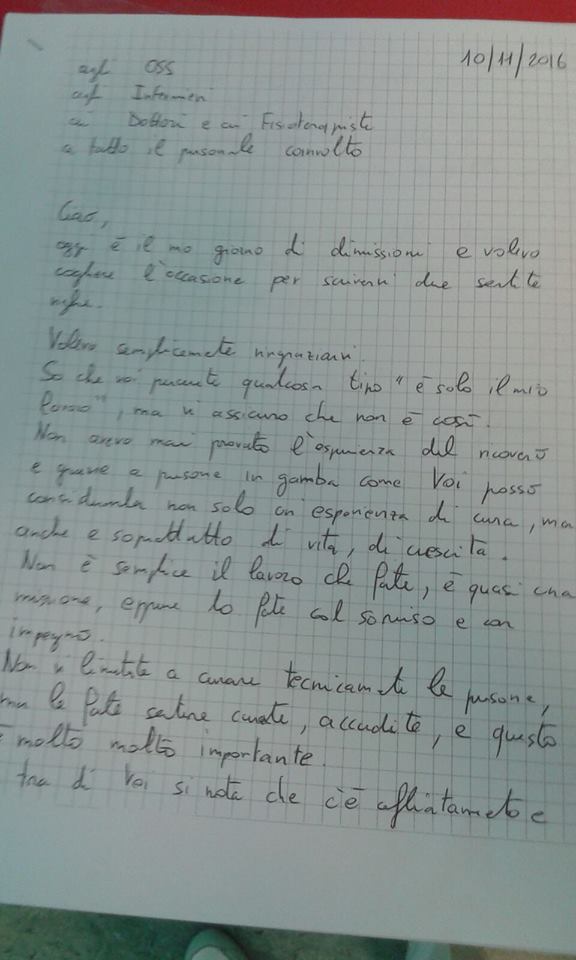 10/11/2016
agli OSS
agli Infermieri
ai Dottori e ai Fisioterapiste
a tutto il personale coinvolto
Ciao,
oggi è il mio giorno di dimissioni e volevo
cogliere l'occasione per scrivervi due sentite
righe.
Volevo semplicemente ringraziarvi.
So che voi penserete qualcosa tipo "è solo il mio
lavoro", ma vi assicuro che non è così.
Non avevo mai provato l'esperienza del ricovero
e grazie a persone in gamba come Voi posso
considerarla non solo un'esperienza di cura, ma
anche e soprattutto di vita, di crescita.
Non è semplice il lavoro che fate, è quasi una
missione, eppure lo fate col sorriso e con
impegno.
Non vi limitate a curare tecnicamente le persone,
ma le fate sentire curate, accudite, e questo
è molto molto importante.
tra di Voi si nota che c'è affiatamento e